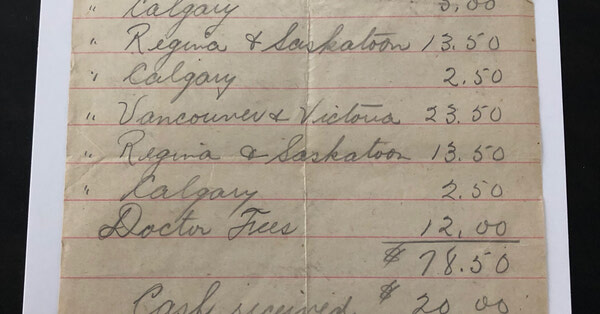 " Calgary 5.00
" Regina & Saskatoon 13.50
" Calgary 2.50
" Vancouver & Victoria 23.50
" Regina & Saskatoon 13.50
" Calgary 2.50
Doctor Fees 12.00
$ 78.50
Cash received $ 20.00